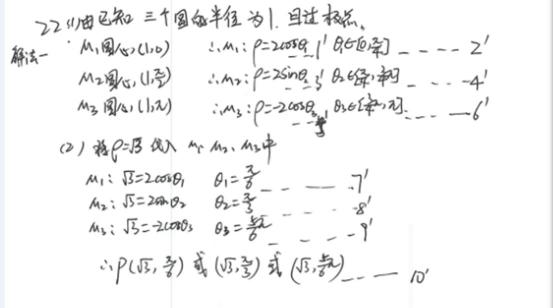 22 (1)由已知 三个圆的半径为1. 且过极点.
解法一 M₁圆心(1,0) ∴M₁: ρ=2cosθ₁ θ₁∈[0,π/4] ---- 2'
M₂圆心(1,π/2) ∴M₂: ρ=2sinθ₂ θ₂∈[π/4,3π/4] ---- 4'
M₃圆心(1,π) ∴M₃: ρ=-2cosθ₃ θ₃∈[3π/4,π] ---- 6'
(2) 将ρ=√3代入 M₁ M₂、M₃中
M₁: √3=2cosθ₁ θ₁=π/6 ---- 7'
M₂: √3=2sinθ₂ θ₂=π/3 ---- 8'
M₃: √3=-2cosθ₃ θ₃=5π/6 ---- 9'
∴P(√3,π/6) 或 (√3,π/3) 或 (√3,5π/6) ---- 10'